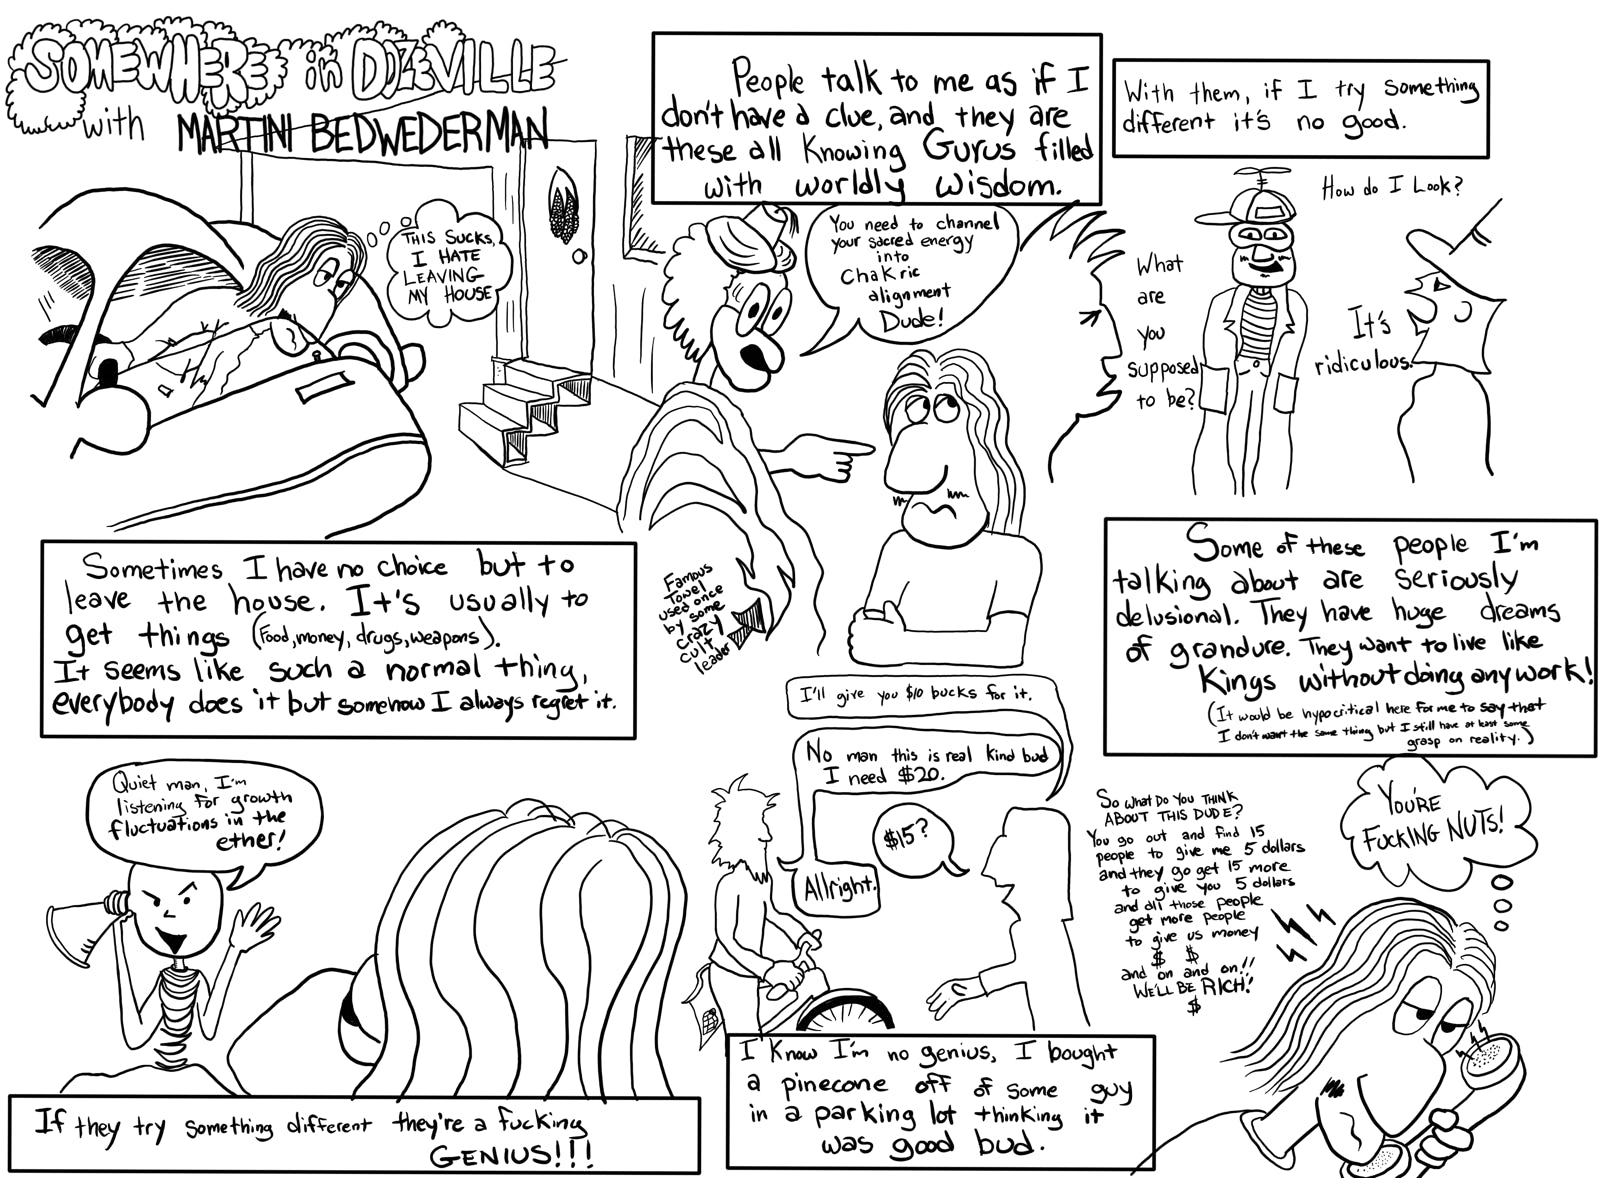 SOMEWHERE in DOZEVILLE
with MARTINI BEDWEDERMAN
THIS SUCKS,
I HATE
LEAVING
MY HOUSE
Sometimes I have no choice but to
leave the house. It's usually to
get things (food, money, drugs, weapons).
It seems like such a normal thing,
everybody does it but somehow I always regret it.
People talk to me as if I
don't have a clue, and they are
these all Knowing Gurus filled
with worldly wisdom.
You need to channel
your sacred energy
into
Chakric
alignment
Dude!
Famous
Towel
used once
by some
crazy
cult
leader
With them, if I try something
different it's no good.
How do I Look?
What
are
you
supposed
to be?
It's
ridiculous.
Quiet man, I'm
listening for growth
fluctuations in the
ether!
If they try something different they're a fucking
GENIUS!!!
I'll give you $10 bucks for it.
No man this is real kind bud
I need $20.
$15?
Allright.
I Know I'm no genius, I bought
a pinecone off of some guy
in a parking lot thinking it
was good bud.
Some of these people I'm
talking about are seriously
delusional. They have huge dreams
of grandure. They want to live like
Kings without doing any work!
(It would be hypocritical here for me to say that
I don't want the same thing but I still have at least some
grasp on reality.)
So WHAT DO YOU THINK
ABOUT THIS DUDE?
You go out and find 15
people to give me 5 dollars
and they go get 15 more
to give you 5 dollars
and all those people
get more people
to give us money
$ $
and on and on!!
WE'LL BE RICH!
$
YOU'RE
FUCKING NUTS!